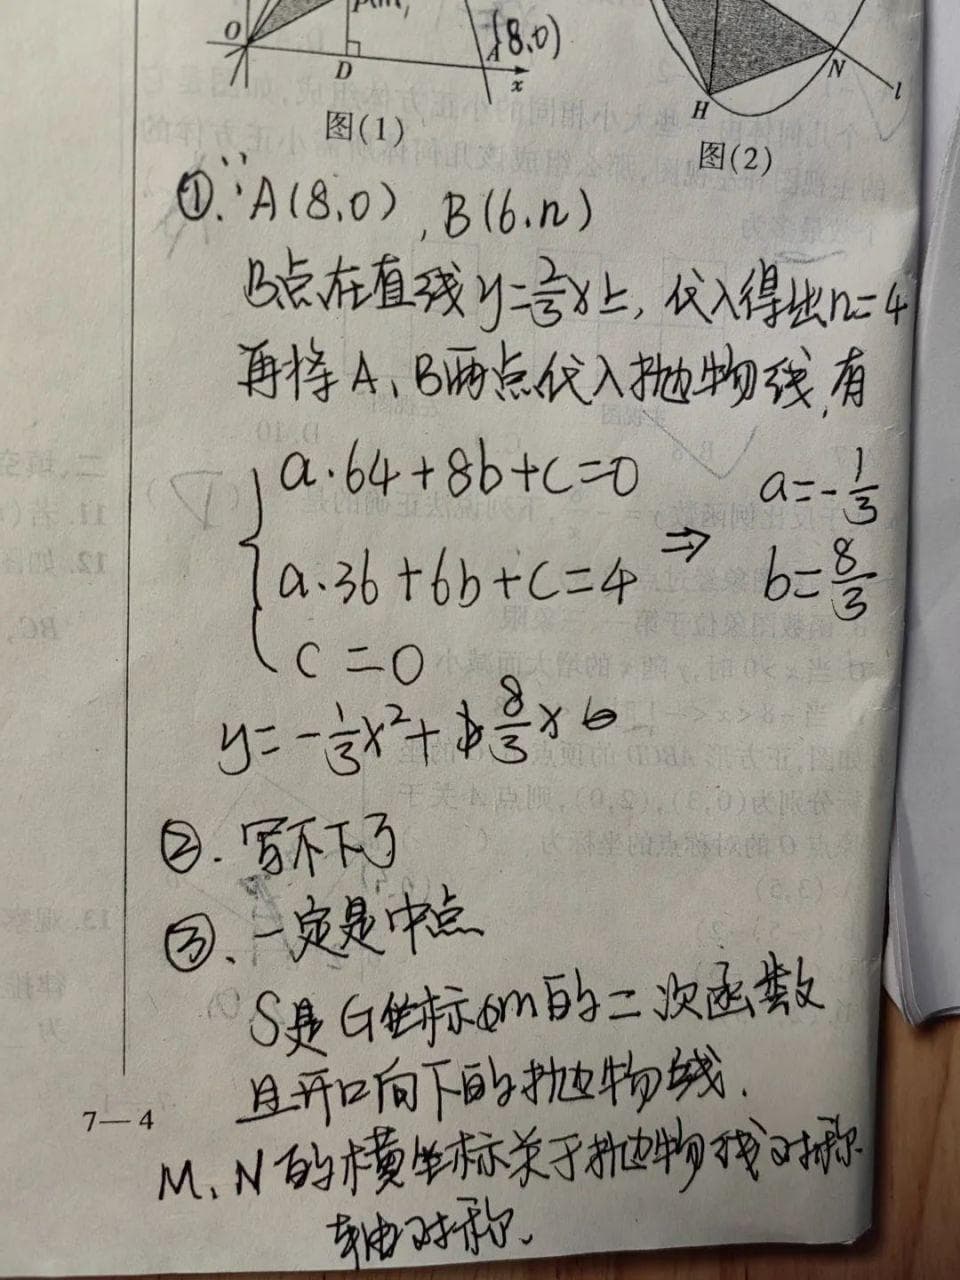 P(m,
O
D
A
(8,0)
x
图(1)
H
N
l
图(2)
①.∵A(8,0),B(6,n)
B点在直线y=2/3x上,代入得出n=4
再将A、B两点代入抛物线,有
a·64+8b+c=0
a·36+6b+c=4
c=0
⇒
a=-1/3
b=8/3
y=-1/3x²+8/3x
②.写不下了
③、一定是中点
S是G坐标m的二次函数
且开口向下的抛物线.
M、N的横坐标关于抛物线对称
轴对称.
7—4
二、填空
11. 若(
12. 如图
BC,
13. 观察
律排
为